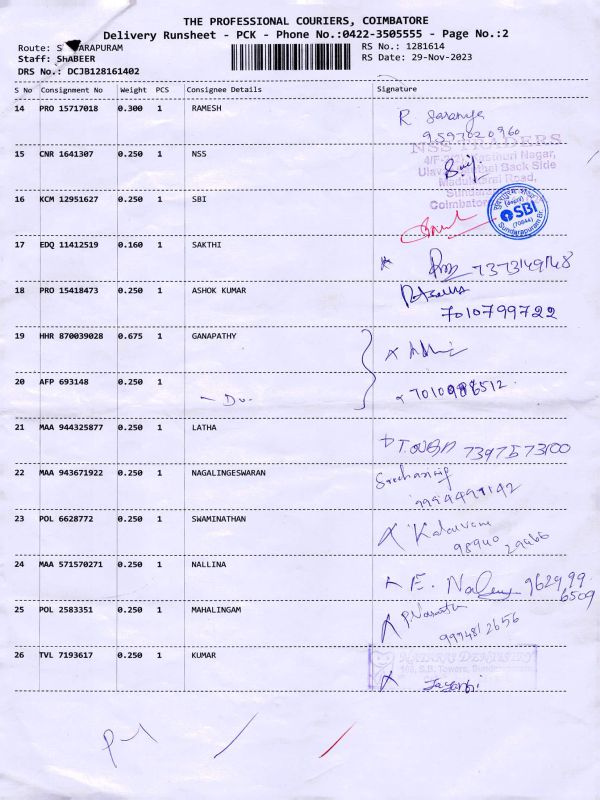 THE PROFESSIONAL COURIERS, COIMBATORE
Delivery Runsheet - PCK - Phone No.:0422-3505555 - Page No.:2
Route: S ARAPURAM
RS No.: 1281614
Staff: ShABEER
RS Date: 29-Nov-2023
DRS No.: DCJB128161402
S No Consignment No Weight PCS Consignee Details Signature
14 PRO 15717018 0.300 1 RAMESH R Saranya
9597020960
NSS TRADERS
15 CNR 1641307 0.250 1 NSS
Nagar,
Back Side
Road,
Coimbatore
16 KCM 12951627 0.250 1 SBI
SBI
(70644)
Sundarapuram Br.
17 EDQ 11412519 0.160 1 SAKTHI 7373149148
18 PRO 15418473 0.250 1 ASHOK KUMAR
7010799722
19 HHR 870039028 0.675 1 GANAPATHY
20 AFP 693148 0.250 1
- Do - 7010988512
21 MAA 944325877 0.250 1 LATHA 7397573100
22 MAA 943671922 0.250 1 NAGALINGESWARAN
9994497142
23 POL 6628772 0.250 1 SWAMINATHAN Kalaivani
98940 29466
24 MAA 571570271 0.250 1 NALLINA E. 9629,99
6509
25 POL 2583351 0.250 1 MAHALINGAM
9994812656
26 TVL 7193617 0.250 1 KUMAR DENTISTRY
S.B. Towers,
Jayanthi